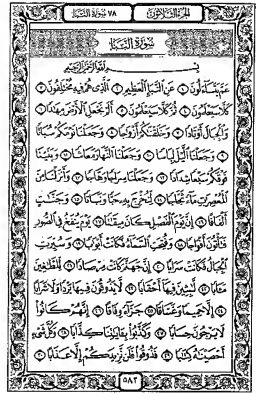 الجزء الثلاثون ٧٨ سورة النبإ
سورة النبإ
بسم الله الرحمن الرحيم
عم يتساءلون ١ عن النبإ العظيم ٢ الذي هم فيه مختلفون ٣
كلا سيعلمون ٤ ثم كلا سيعلمون ٥ ألم نجعل الأرض مهادا ٦
والجبال أوتادا ٧ وخلقناكم أزواجا ٨ وجعلنا نومكم سباتا
٩ وجعلنا الليل لباسا ١٠ وجعلنا النهار معاشا ١١ وبنينا
فوقكم سبعا شدادا ١٢ وجعلنا سراجا وهاجا ١٣ وأنزلنا من
المعصرات ماء ثجاجا ١٤ لنخرج به حبا ونباتا ١٥ وجنات
ألفافا ١٦ إن يوم الفصل كان ميقاتا ١٧ يوم ينفخ في الصور
فتأتون أفواجا ١٨ وفتحت السماء فكانت أبوابا ١٩ وسيرت
الجبال فكانت سرابا ٢٠ إن جهنم كانت مرصادا ٢١ للطاغين
مآبا ٢٢ لابثين فيها أحقابا ٢٣ لا يذوقون فيها بردا ولا شرابا
٢٤ إلا حميما وغساقا ٢٥ جزاء وفاقا ٢٦ إنهم كانوا
لا يرجون حسابا ٢٧ وكذبوا بآياتنا كذابا ٢٨ وكل شيء
أحصيناه كتابا ٢٩ فذوقوا فلن نزيدكم إلا عذابا ٣٠
٥٨٢